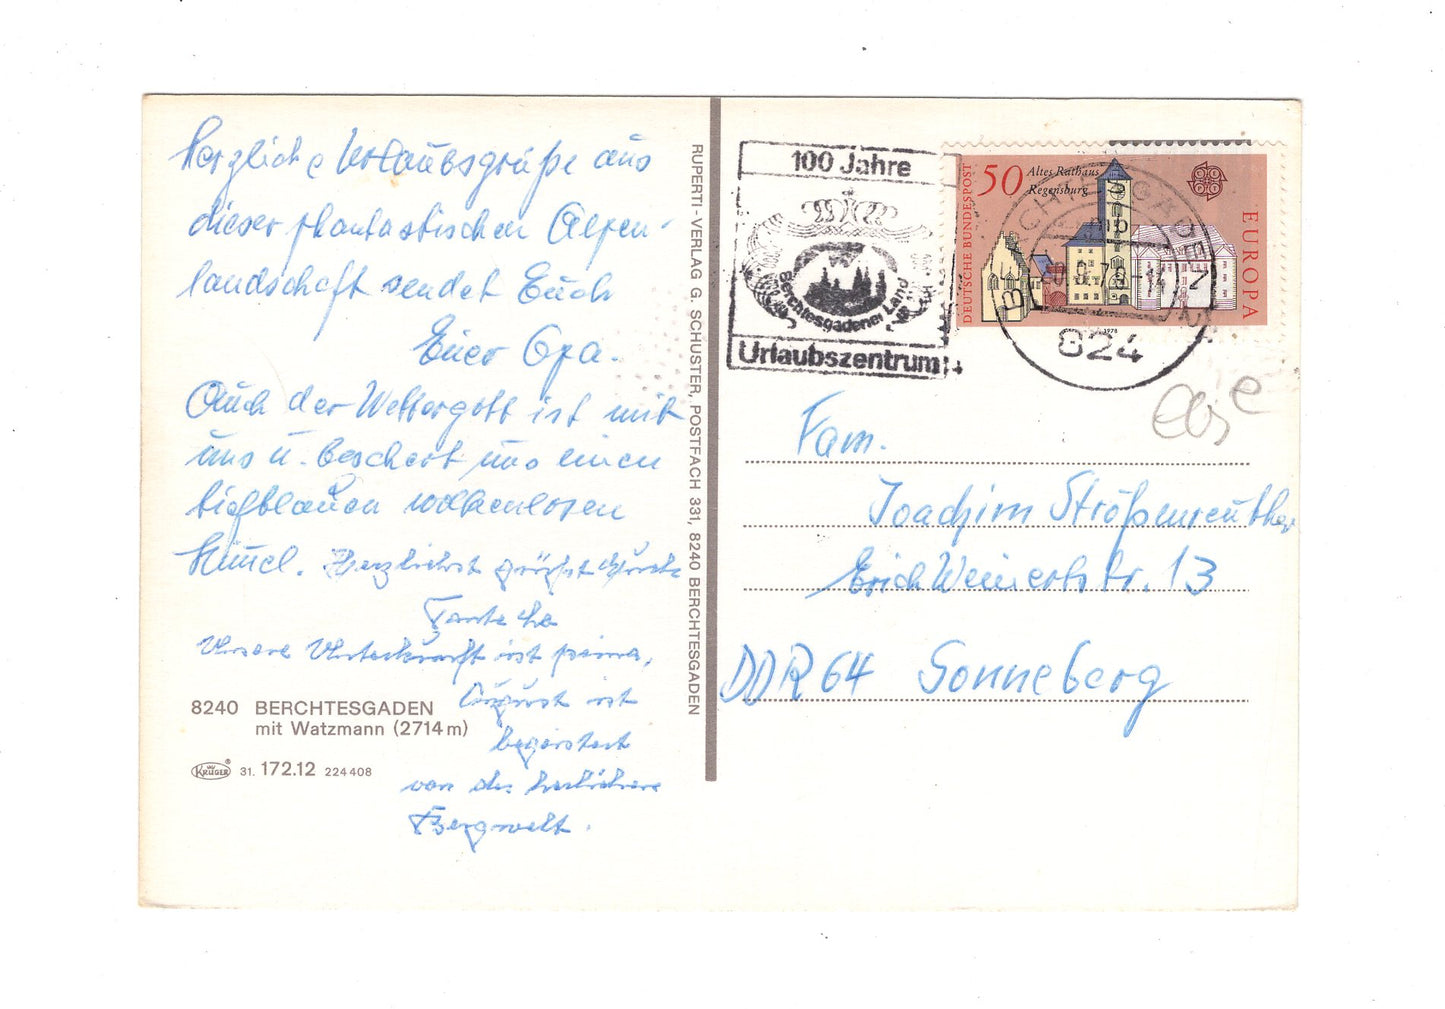 Herzliche Urlaubsgrüße aus
dieser phantastischen Alpen-
landschaft sendet Euch
Euer Opa.
Auch der Wettergott ist mit
uns u. beschert uns einen
tiefblauen wolkenlosen
Himmel. Herzlichst grüßt Euch
Tante
Unsere Unterkunft ist prima,
August ist
begeistert
von der herrlichen
Bergwelt.
8240 BERCHTESGADEN
mit Watzmann (2714 m)
KRÜGER® 31. 172.12 224 408
RUPERTI-VERLAG G. SCHUSTER, POSTFACH 331, 8240 BERCHTESGADEN
100 Jahre
Berchtesgadener Land
Urlaubszentrum
50 Altes Rathaus
Regensburg
DEUTSCHE BUNDESPOST
EUROPA
1978
BERCHTESGADEN
mb
824
Fam.
Joachim Strößenreuther
Erich Weinertstr. 13
DDR 64 Sonneberg